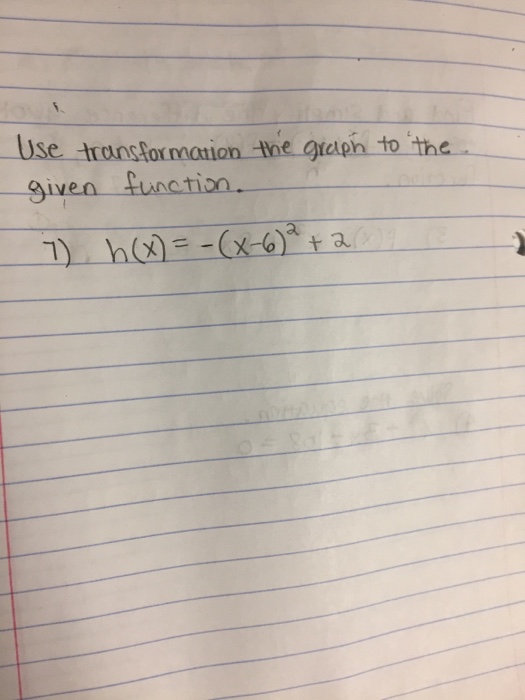 Use transformation the graph to the
given function.
7) h(x) = -(x-6)² + 2